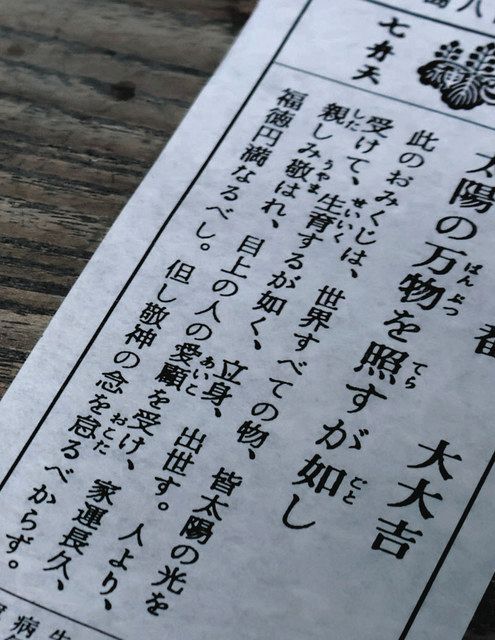 七弁天
番 大大吉
ばんぶつ てら ごと
太陽の万物を照すが如し
此のおみくじは、世界すべての物、皆太陽の光を
せいいく
受けて、生育するが如く、立身、出世す。人より、
した うやま あいこ
親しみ敬はれ、目上の人の愛顧を受け、家運長久、
おこた
福徳円満なるべし。但し敬神の念を怠るべからず。